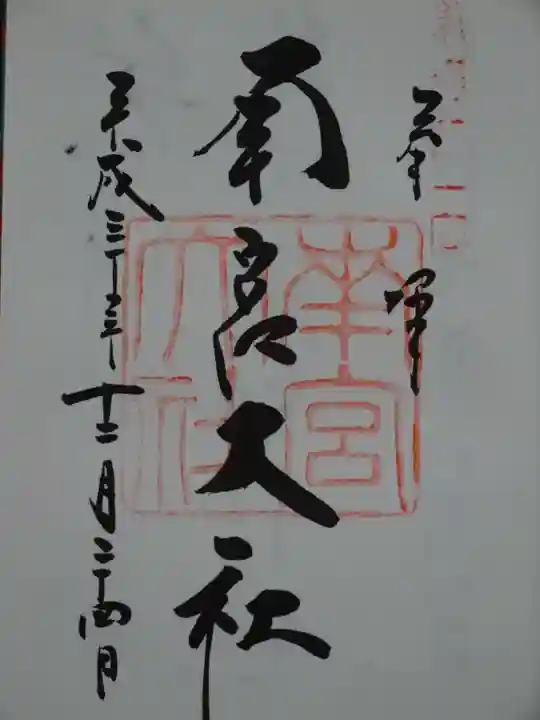 奉拝
南宮大社
平成三十年十二月二十四日
南宮
大社